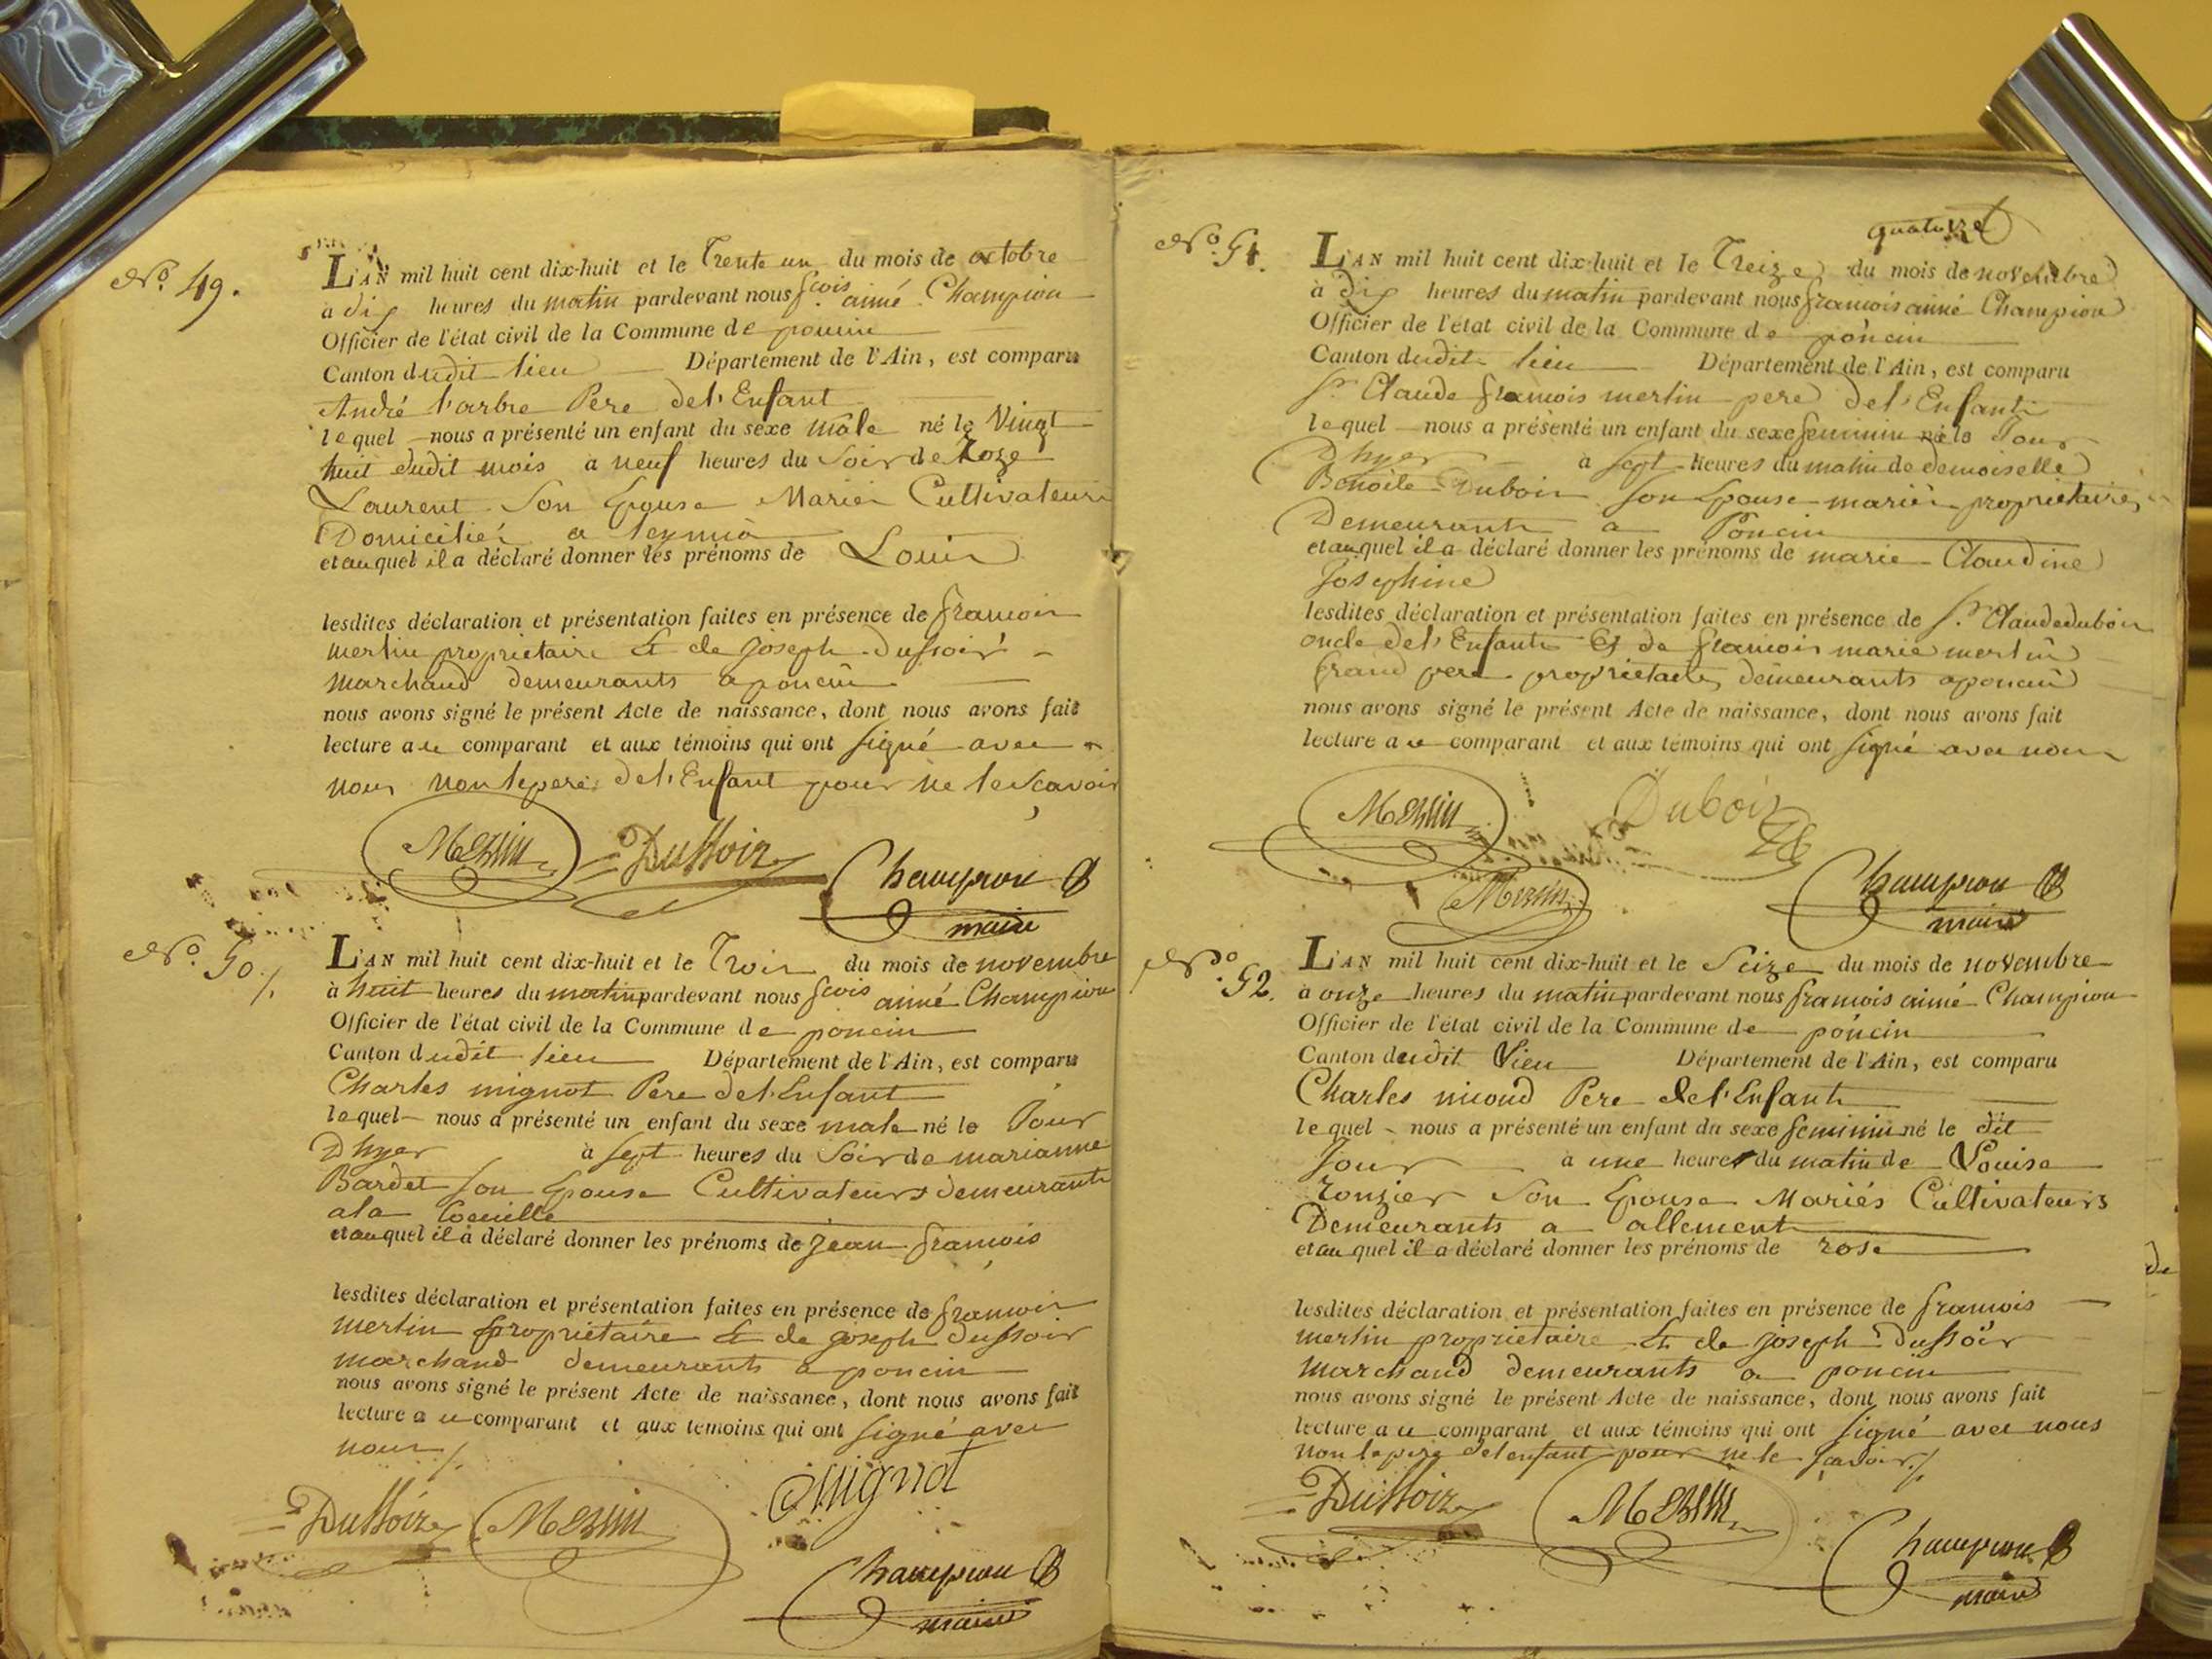 No. 49.
L'AN mil huit cent dix-huit et le Trente un du mois de octobre
a dix heures du matin pardevant nous fcois aimé Champion
Officier de l'état civil de la Commune de poncin
Canton dudit lieu Département de l'Ain, est comparu
André l'arbre Pere del'Enfant
lequel nous a présenté un enfant du sexe mâle né le Vingt
huit dudit mois à neuf heures du Soir de Roze
Laurent Son Epouse Mariés Cultivateurs
Domiciliés a
et auquel il a déclaré donner les prénoms de Louis
lesdites déclaration et présentation faites en présence de françois
merlin propriétaire Et de joseph dussoir
marchand demeurants a poncin
nous avons signé le présent Acte de naissance, dont nous avons fait
lecture au comparant et aux témoins qui ont signé avec
nous non le pere del'Enfant pour ne le Scavoir
Merlin Dussoir Champion
maire
No. 50 ./.
L'AN mil huit cent dix-huit et le Trois du mois de novembre
à huit heures du matin pardevant nous fcois aimé Champion
Officier de l'état civil de la Commune de poncin
Canton dudit lieu Département de l'Ain, est comparu
Charles mignot Pere del'Enfant
lequel nous a présenté un enfant du sexe male né le Jour
Dhyer à sept heures du Soir de marianne
Bardet son Epouse Cultivateurs demeurants
a la Coeuille
et auquel il à déclaré donner les prénoms de jean françois
lesdites déclaration et présentation faites en présence de françois
merlin propriétaire Et de joseph dussoir
marchand demeurants a poncin
nous avons signé le présent Acte de naissance, dont nous avons fait
lecture au comparant et aux témoins qui ont signé avec
nous ./.
Dussoir Merlin Mignot
Champion
maire
quatorze
No. 51.
L'AN mil huit cent dix-huit et le Treize du mois de novembre
à dix heures du matin pardevant nous francois aimé Champion
Officier de l'état civil de la Commune de poncin
Canton dudit lieu Département de l'Ain, est comparu
Sr Claude francois merlin pere del'Enfant
lequel nous a présenté un enfant du sexe feminin né le Jour
Dhyer à sept heures du matin de demoiselle
Benoite Dubois son Epouse mariés propriétaires
Demeurants a Poncin
et auquel il a déclaré donner les prénoms de marie Claudine
Josephine
lesdites déclaration et présentation faites en présence de Sr Claude dubois
oncle del'Enfant Et de francois marie merlin
grand pere propriétaires demeurants a poncin
nous avons signé le présent Acte de naissance, dont nous avons fait
lecture au comparant et aux témoins qui ont signé avec nous
Merlin Dubois
Merlin Champion
maire
No. 52.
L'AN mil huit cent dix-huit et le Seize du mois de novembre
à onze heures du matin pardevant nous francois aimé Champion
Officier de l'état civil de la Commune de poncin
Canton dudit lieu Département de l'Ain, est comparu
Charles nicoud Pere del'Enfant
lequel nous a présenté un enfant du sexe feminin né le dit
Jour à une heures du matin de Louise
ronzier Son Epouse Mariés Cultivateurs
Demeurants a allement
et auquel il a déclaré donner les prénoms de rose
de
lesdites déclaration et présentation faites en présence de francois
merlin propriétaire Et de joseph Dussoir
marchand demeurants a poncin
nous avons signé le présent Acte de naissance, dont nous avons fait
lecture au comparant et aux témoins qui ont signé avec nous
non le pere del enfant pour ne le savoir ./.
Dussoir Merlin Champion
maire